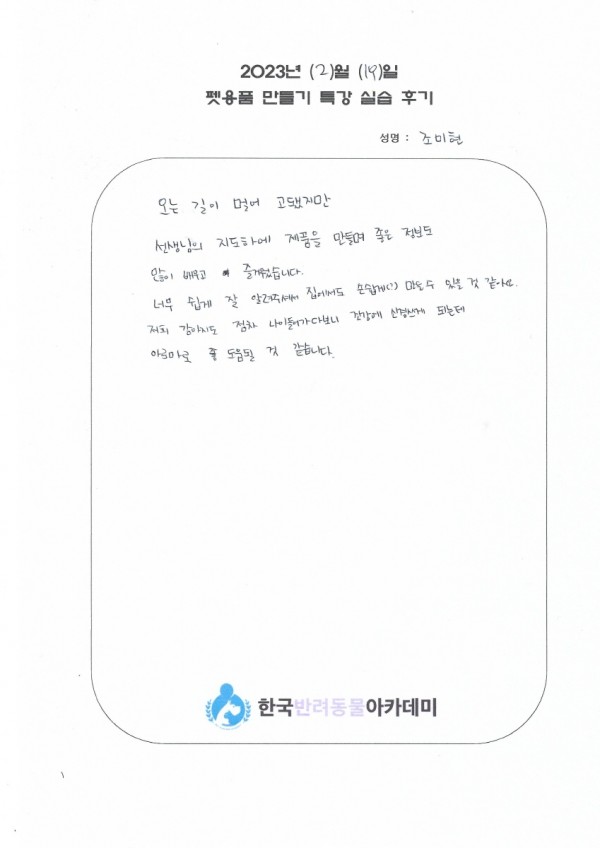 2023년 (2)월 (19)일
펫용품 만들기 특강 실습 후기
성명 : 조미현
오는 길이 멀어 고됐지만
선생님의 지도하에 제품을 만들며 좋은 정보도
많이 배우고 즐거웠습니다.
너무 쉽게 잘 알려주셔서 집에서도 손쉽게(?) 만들 수 있을 것 같아요.
저희 강아지도 점차 나이들어가다보니 건강에 신경쓰게 되는데
아로마로 좀 도움될 것 같습니다.
한국반려동물아카데미